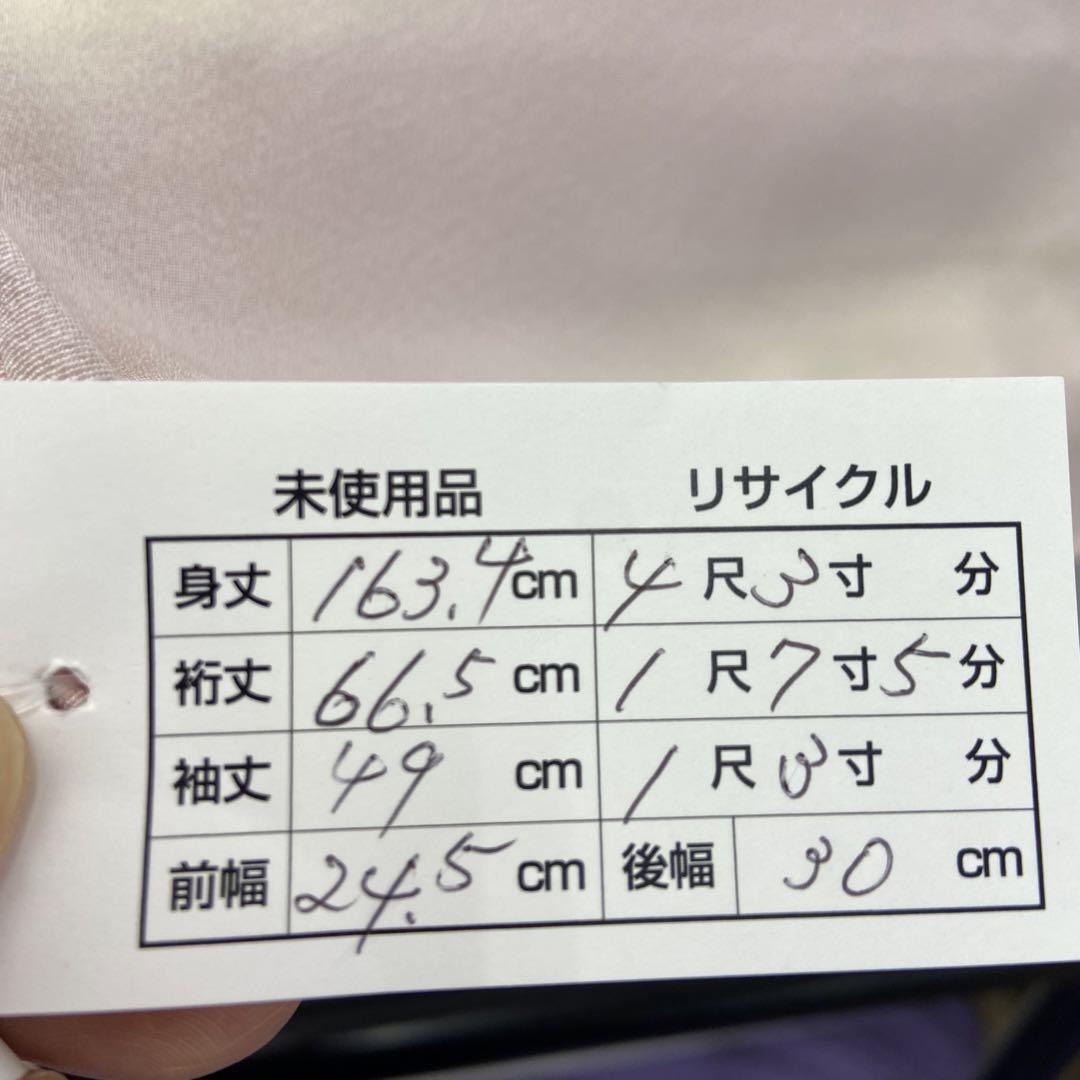 未使用品 リサイクル
身丈 163.4cm 4尺3寸 分
裄丈 66.5cm 1尺7寸5分
袖丈 49cm 1尺3寸 分
前幅 24.5cm 後幅 30cm